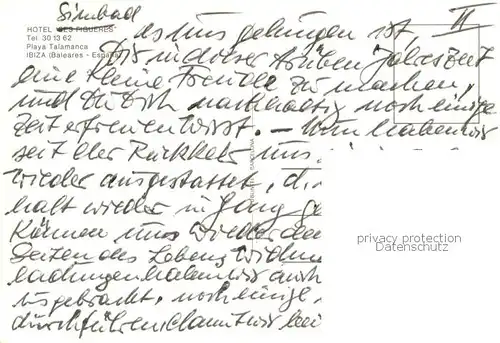 Simbad
HOTEL LES FIGUERES
Tel 30 13 62
Playa Talamanca
IBIZA (Baleares - España)
II
es uns gelungen ist,
Dir in dieser trüben Jahreszeit
eine kleine Freude zu machen,
und Du Dich nachhaltig noch einige
Zeit erfreuen wirst. – Nun haben wir
seit der Rückkehr uns
wieder ausgestattet, d.
halt wieder in Gang
können uns wieder den
Seiten des Lebens widmen
ladungen haben wir auch
ausgebracht, noch einige
durchführen, damit wir bei
privacy protection
Datenschutz